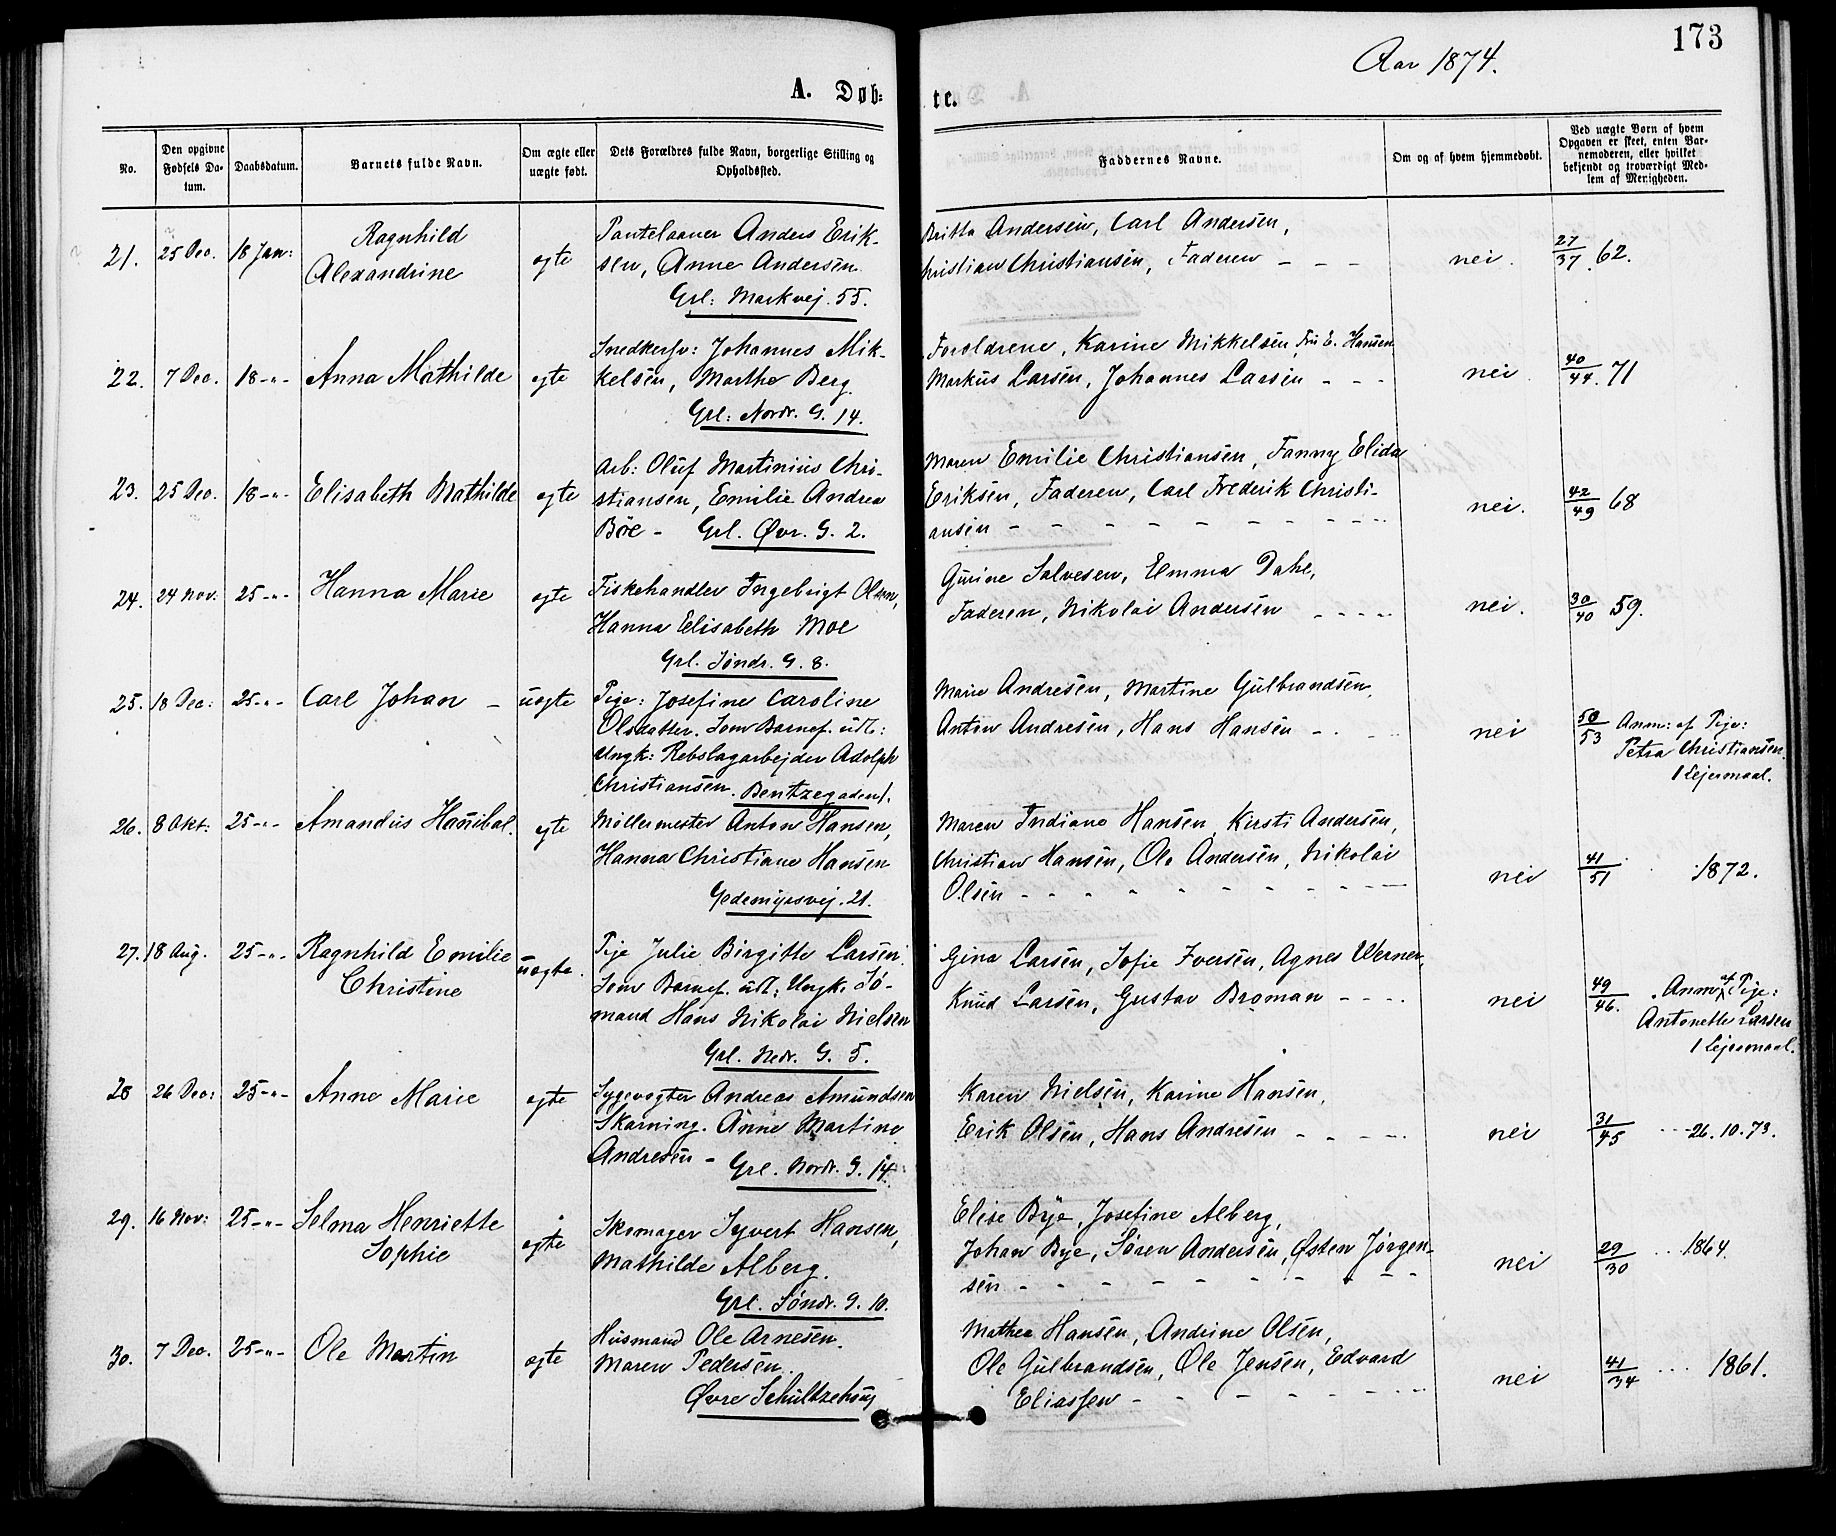 173
Aar 1874.
A. Døb- te.
No.
Den opgivne Fødsels Datum.
Daabsdatum.
Barnets fulde Navn.
Om ægte eller uægte født.
Dets Forældres fulde Navn, borgerlige Stilling og Opholdssted.
Faddernes Navne.
Om og af hvem hjemmedøbt.
Ved uægte Børn af hvem Opgaven er skeet, enten Barnemoderen, eller hvilket bekjendt og troværdigt Medlem af Menigheden.
21. 25 Dec. 18 Jan:
Ragnhild
Alexandrine
egte
Pantelaaner Anders Erik-
sen, Anne Andersen
Grl: Markvej. 55.
Britta Andersen, Carl Andersen,
Christian Christiansen, Faderen - - -
nei.
27/37. 62.
22. 7 Dec. 18 -"- Anna Mathilde egte
Snedkersv: Johannes Mik-
kelsen, Marthe Berg.
Grl: Nordr. G. 14.
Foreldrene, Karine Mikkelsen, Fru E. Hansen
Markus Larsen, Johannes Larsen - - -
nei.
40/44. 71
23. 25 Dec. 18 -"- Elisabeth Mathilde egte
Arb: Oluf Martinius Chri-
stiansen, Emilie Andrea
Böe - Grl. Øvr. G. 2.
Maren Emilie Christiansen, Fanny Elida
Eriksen, Faderen, Carl Frederik Christi-
ansen - - - - - - - - -
nei.
42/49 68
24. 24 Nov: 25 -"- Hanna Marie egte
Fiskehandler Ingebrigt Olsen,
Hanna Elisabeth Moe
Grl. Søndr. G. 8.
Gurine Salvesen, Emma Dahl,
Faderen, Nikolai Andersen - - - -
nei.
30/40 59.
25. 18 Dec: 25 -"- Carl Johan - uegte
Pige: Josefine Caroline
Olsdatter. Som Barnef. udl:
Ungk: Rebslagarbejder Adolph
Christiansen. Bentzegaden 1.
Marie Andresen, Martine Gulbrandsen,
Anton Andresen, Hans Hansen - - -
nei
50/53 Anm: af Pige:
Petra Christiansen
1 Lejermaal.
26. 8 Okt: 25 -"- Amandus Hanibal. egte
Møllermester Anton Hansen,
Hanna Christiane Hansen
Gedemyrsvej. 21.
Maren Indiane Hansen, Kirsti Andersen,
Christian Hansen, Ole Andersen, Nikolai
Olsen - - - - - - - - -
nei
41/51 1872.
27. 18 Aug. 25 -"- Ragnhild Emilie
Christine
uegte.
Pige Julie Birgitte Larsen.
Som Barnef. udl: Ungk. Sö-
mand Hans Nikolai Nielsen
Grl. Nedr. G. 5.
Gina Larsen, Sofie Iversen, Agnes Werner,
Knud Larsen, Gustav Broman - - - -
nei
49/46. Anm. af Pige:
Antonette Larsen
1 Lejermaal.
28 26 Dec: 25 -"- Anne Marie egte
Sygevogter Andreas Amundsen
Skarning. Anne Martine
Andresen - Grl. Nordr. G. 14.
Karen Nielsen, Karine Hansen,
Erik Olsen, Hans Andresen - - - -
nei
31/45 26.10.73.
29. 16 Nov: 25 -"- Selma Henriette
Sophie
egte
Skomager Syvert Hansen,
Mathilde Alberg.
Grl. Søndr. G. 10.
Elise Bye, Josefine Alberg,
Johan Bye, Søren Andersen, Østen Jørgen-
sen - - - - - - - - -
nei
29/30 1864.
30. 7 Dec. 25 -"- Ole Martin egte
Husmand Ole Arnesen.
Maren Pedersen.
Øvre Schultzehus
Mathea Hansen, Andrine Olsen,
Ole Gulbrandsen, Ole Jensen, Edvard
Eliassen - - - - - - -
nei
41/34 1861.